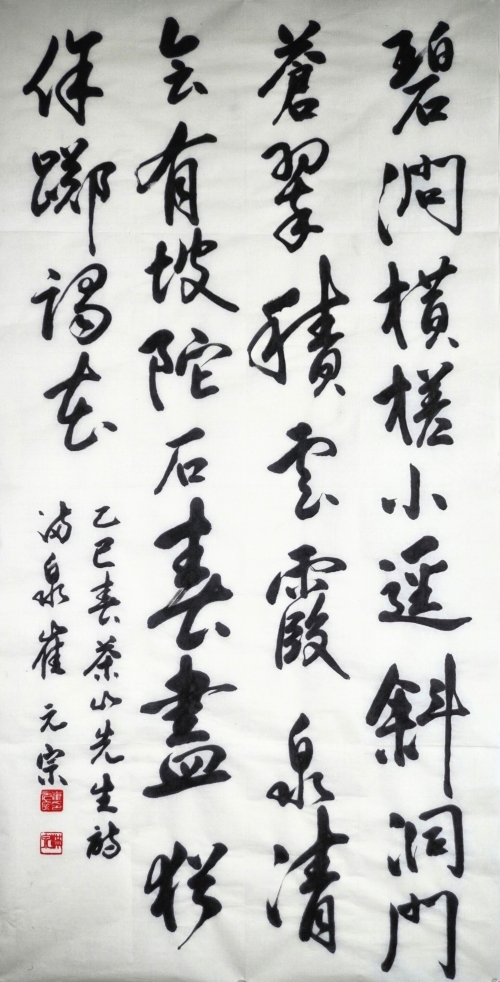 碧澗橫槎小逕斜洞門
蒼翠積雲霞泉清
會有坡陀石春盡猶
餘躑躅花
乙巳春茶山先生詩
滿泉崔元宗